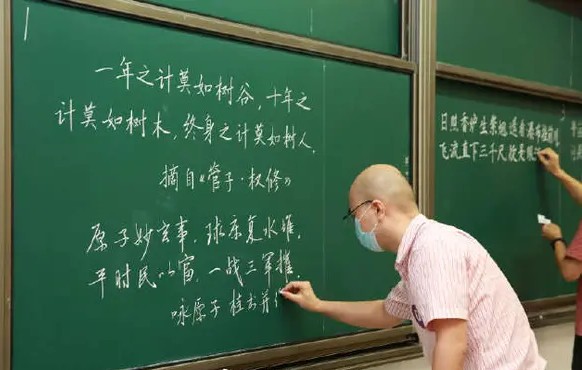 一年之计莫如树谷，十年之
计莫如树木，终身之计莫如树人。
摘自《管子·权修》
原子妙玄事，球床复水堆。
平时民以富，一战三军摧。
咏原子
日照香炉生紫烟，遥看瀑布挂前川
飞流直下三千尺，疑是银